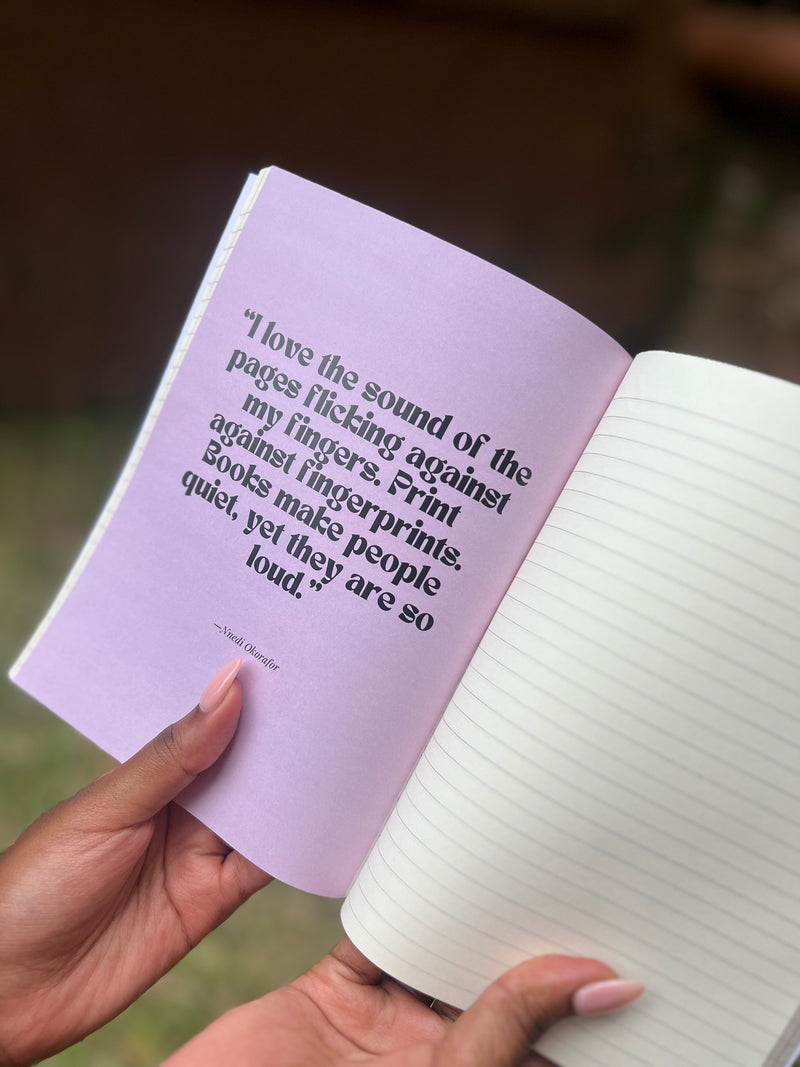 “I love the sound of the
pages flicking against
my fingers. Print
against fingerprints.
Books make people
quiet, yet they are so
loud.”
—Nnedi Okorafor